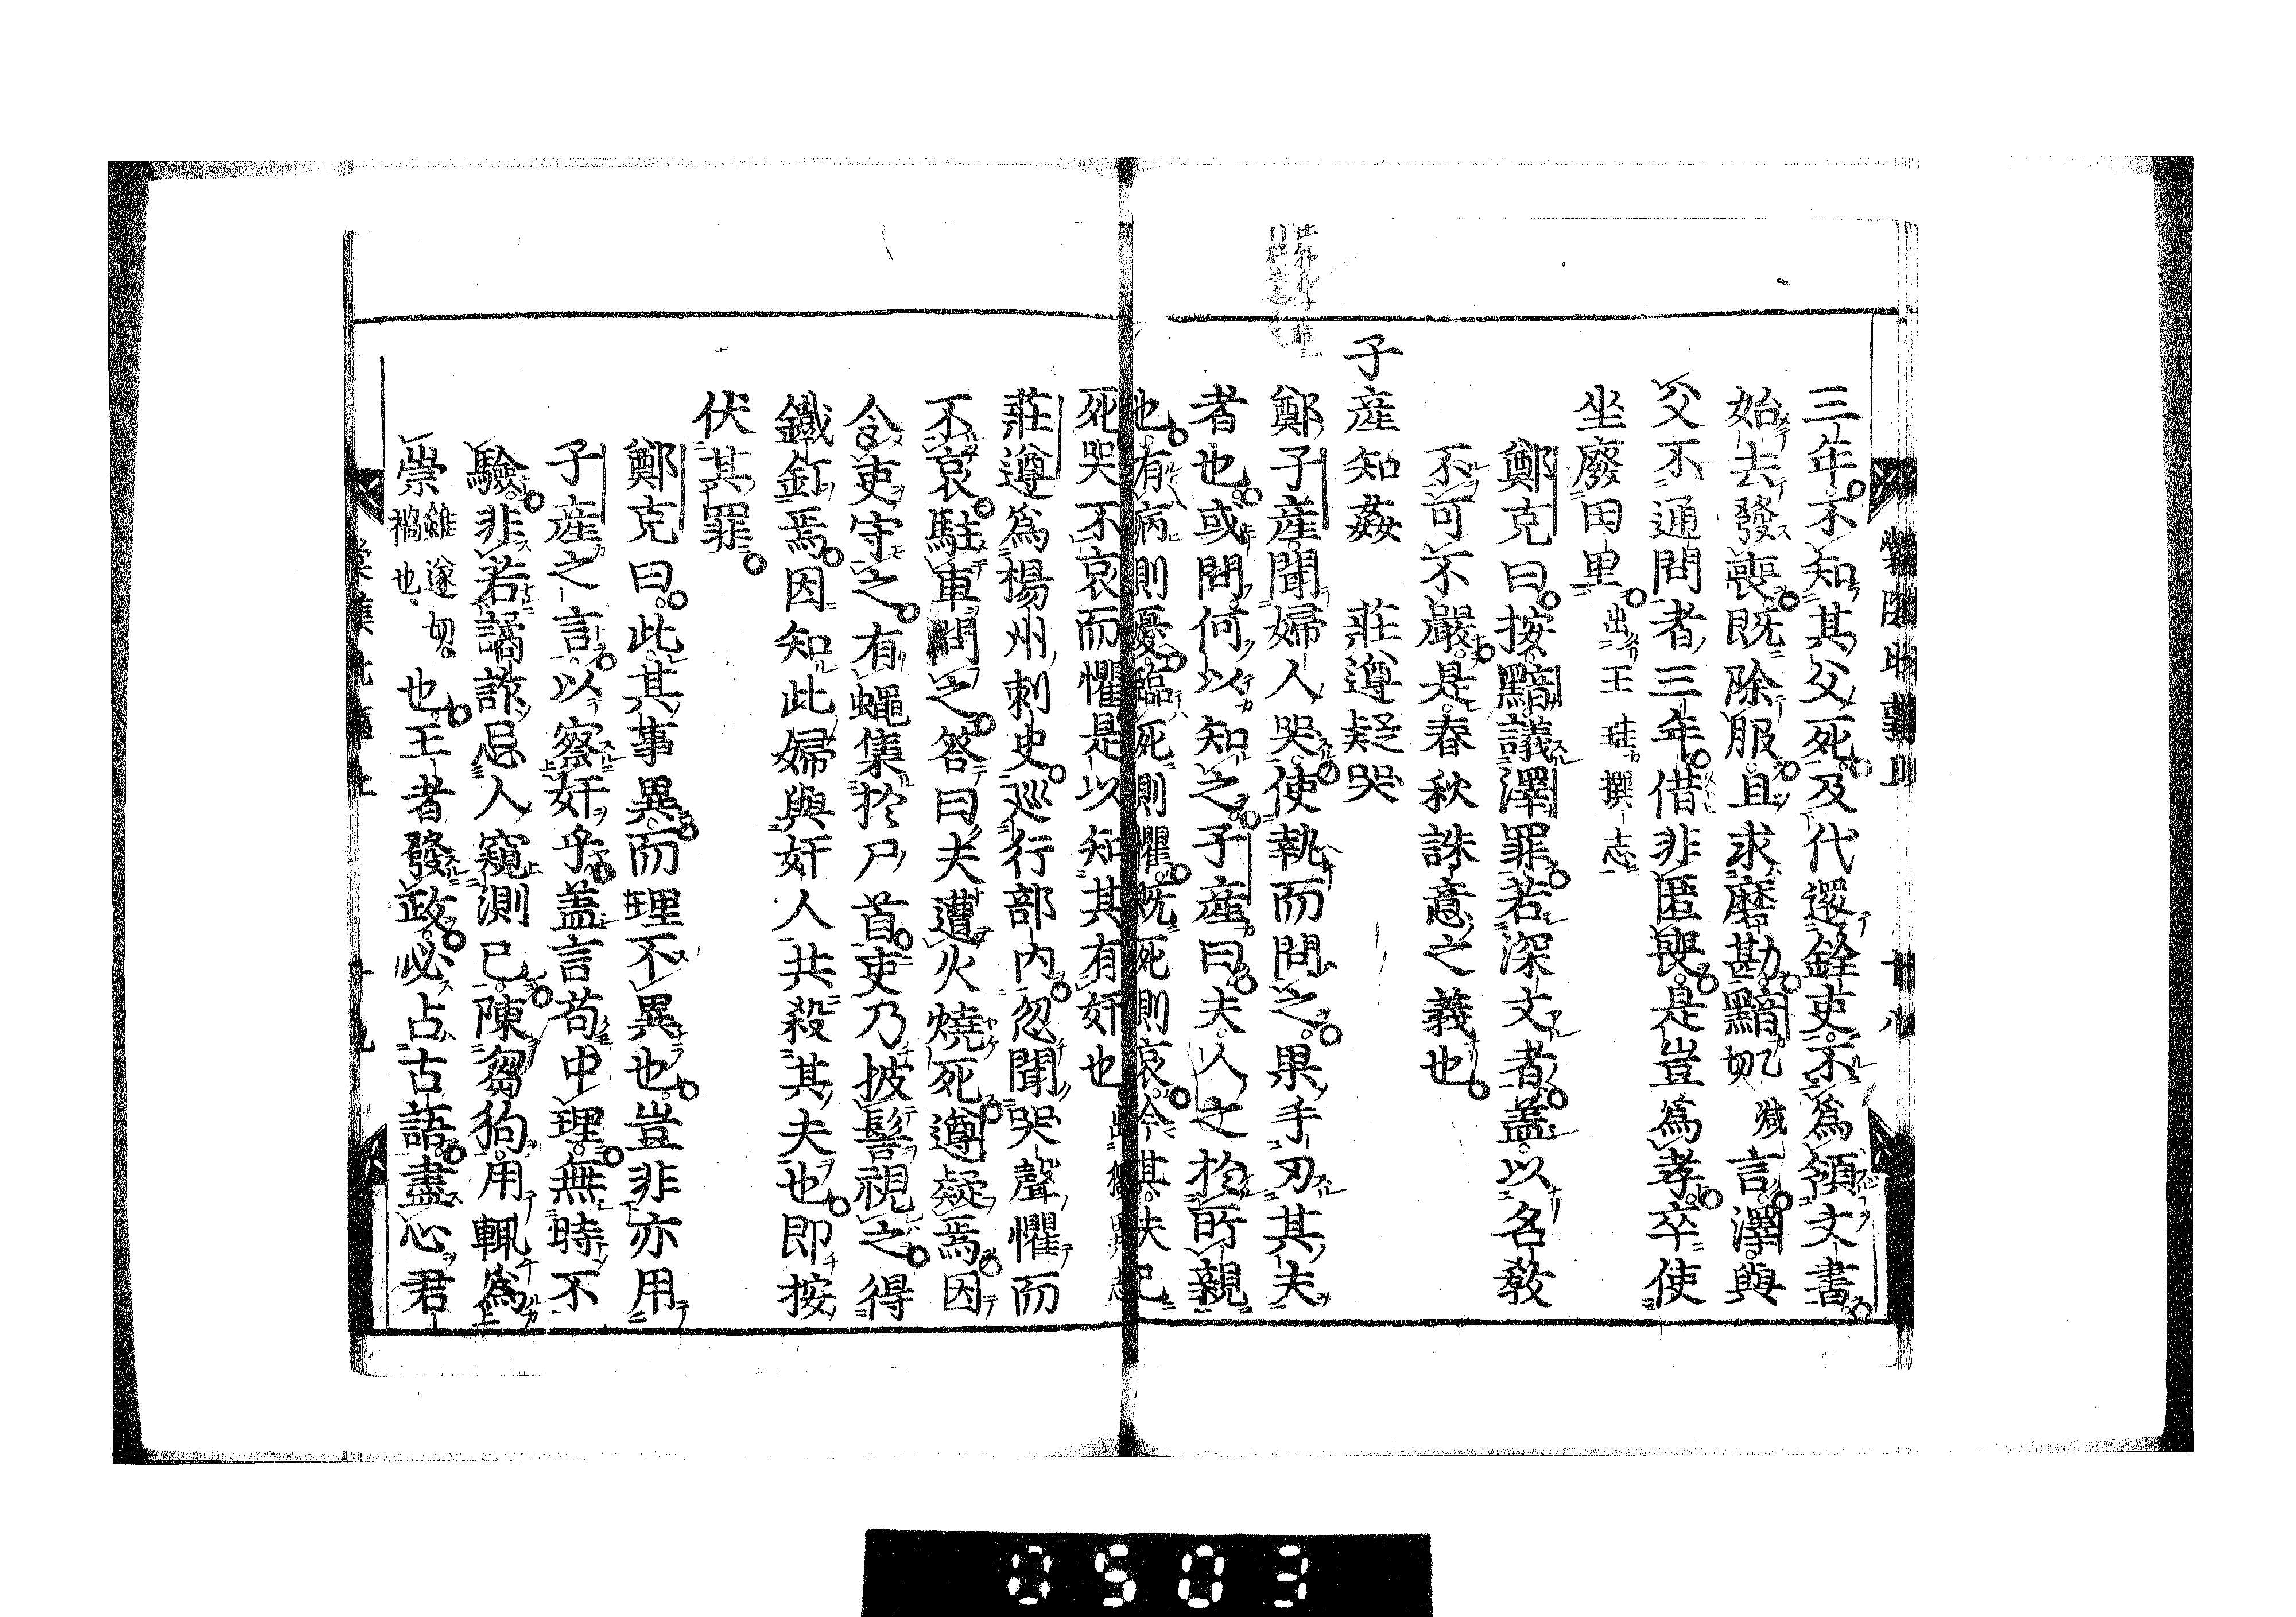 三年不知其父死及代還銓吏不爲領文書
始去發喪既除服且求磨勘黯乙减切言澤與
父不通問者三年借非匿喪是豈爲孝卒使
坐廢田里出王珪撰志
鄭克曰按黯議澤罪若深文者盖以名敎
不可不嚴是春秋誅意之義也
子産知姦　莊遵疑哭
鄭子産聞婦人哭使執而問之果手刃其夫
者也或問何以知之子産曰夫人之於所親
也有病則憂臨死則懼既死則哀今其夫已
死哭不哀而懼是以知其有奸也
莊遵爲揚州刺史巡行部内忽聞哭聲懼而
不哀駐車問之答曰夫遭火燒死遵疑焉因
令吏守之有蠅集於尸首吏乃披髻視之得
鐵釘焉因知此婦與奸人共殺其夫也即按
伏其罪
鄭克曰此其事異而理不異也豈非亦用
子産之言以察奸乎盖言苟中理無時不
驗非若譎詐忌人窺測已陳芻狗用輒爲
祟雖遂切禍也也王者發政必占古語盡心君
0503